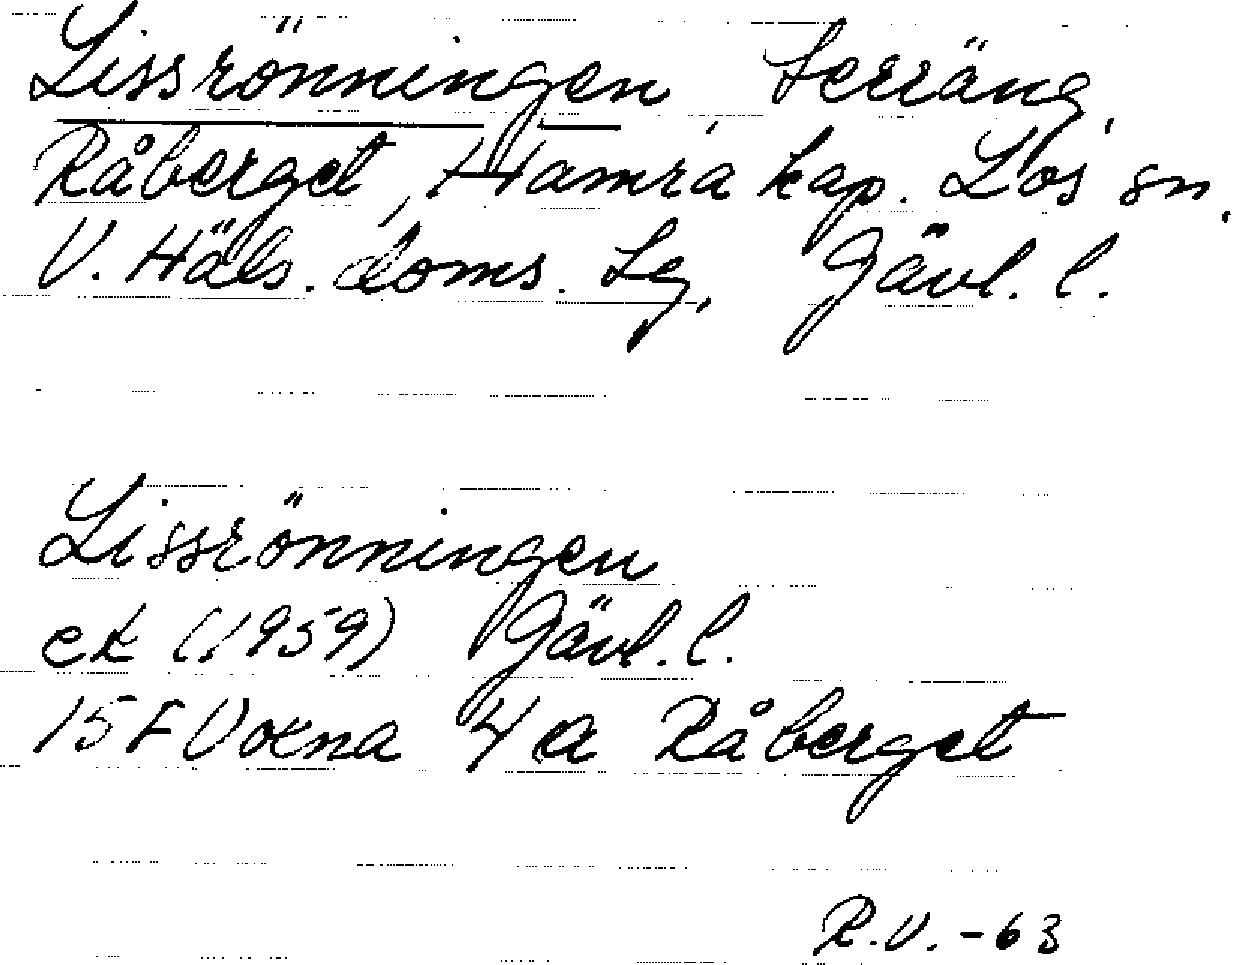 Lissrönningen terräng,
Råberget, Hamra kap. Los sn,
V. Häls. doms. tg, Gävl. l.
Lissrönningen
ek (1959) Gävl. l.
15F Voxna 4a Råberget
R.V. -63